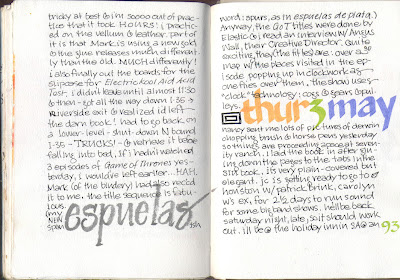 tricky at best (& i'm soooo out of prac-
tice that it took HOURS! i practiced
on the vellum & leather. part of
it is that Mark is using a new gold
& the glue releases much different-
ly than the old. MUCH differently!
i also finally cut the boards for the
slipcase for Electric Kool-Aid Acid
Test. i didn't leave until almost 11:30
& then - got all the way down I-35 →
Riverside exit & realized i'd left
the darn book! had to go back, on
a lower-level - shut-down N bound
I-35 - TRUCKS! - & retrieve it before
falling into bed. if i hadn't watched
3 episodes of Game of Thrones yes-
terday, i would've left earlier... HAH.
Mark (of the bindery) had also rec'd
it to me. the title sequence is fabu-
lous.
(my
NEW
Span
espuelas
word: spurs, as in espuelas de plata.)
Anyway, the GoT titles were done by
Elastic (i read an interview w/ Angus
Wall, their Creative Director. Quite
exciting. they (the titles) are: over a 3D
map w/ the places visited in the ep-
isode popping up in clockwork as
one flies over them. the show uses
"clock" technology: cogs & gears & pul-
leys.
thur 3 may
nancy sent me lots of pictures of darwin
chopping brush & horse pens yesterday
so things are proceeding apace at seren-
ity ranch. i had the book in after glu-
ing down the pages to the tabs in the
slit book. it's very plain-covered but
elegant. jc is getting ready to go to
houston w/ patrick brink, carolyn
w's ex, for 2½ days to run sound
for some big band shows. he'll be back
saturday night, late, so it should work
out. i'll be @ the holiday inn in SA @ 3m
93